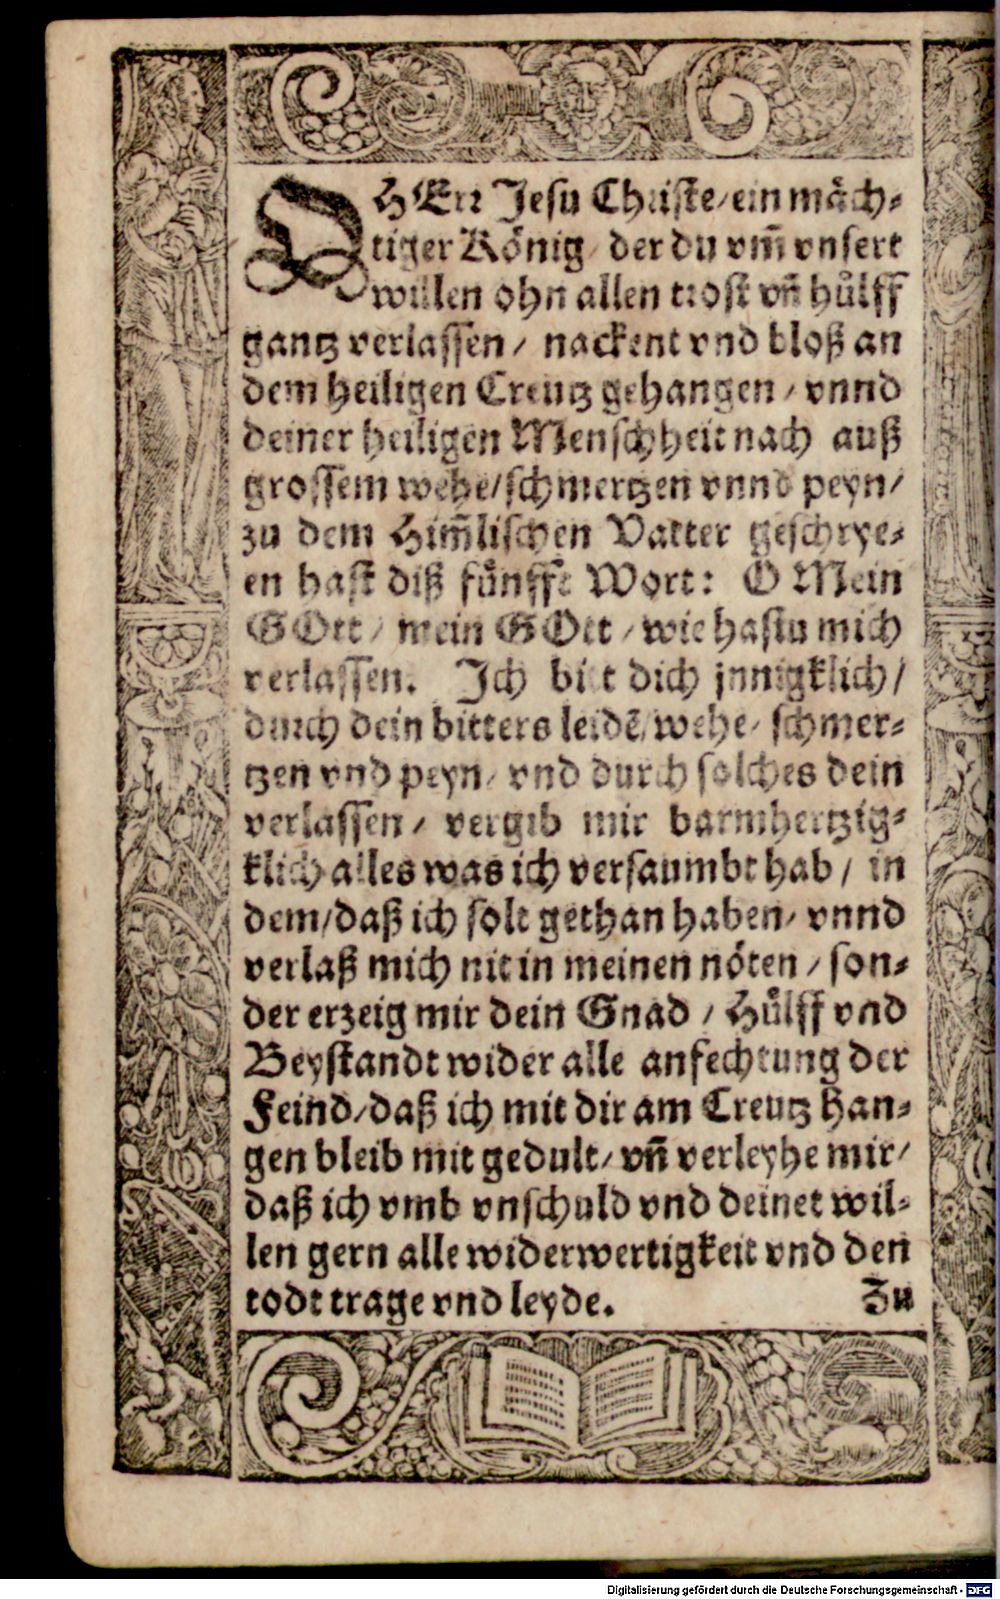 O HErr Jesu Christe/ ein mäch-
tiger König/ der du vm̄ vnsert
willen ohn allen trost vñ hülff
gantz verlassen/ nackent vnd bloß an
dem heiligen Creutz gehangen/ vnnd
deiner heiligen Menschheit nach auß
grossem wehe/ schmertzen vnnd peyn/
zu dem Him̄lischen Vatter geschrye-
en hast diß fünffte Wort: O Mein
GOtt/ mein GOtt/ wie hastu mich
verlassen. Ich bitt dich jnnigklich/
durch dein bitters leidē/ wehe/ schmer-
tzen vnd peyn/ vnd durch solches dein
verlassen/ vergib mir barmhertzig-
klich alles was ich versaumbt hab/ in
dem/ daß ich solt gethan haben/ vnnd
verlaß mich nit in meinen nöten/ son-
der erzeig mir dein Gnad/ Hülff vnd
Beystandt wider alle anfechtung der
Feind/ daß ich mit dir am Creutz han-
gen bleib mit gedult/ vñ verleyhe mir/
daß ich vmb vnschuld vnd deinet wil-
len gern alle widerwertigkeit vnd den
todt trage vnd leyde. Zu
Digitalisierung gefördert durch die Deutsche Forschungsgemeinschaft - DFG